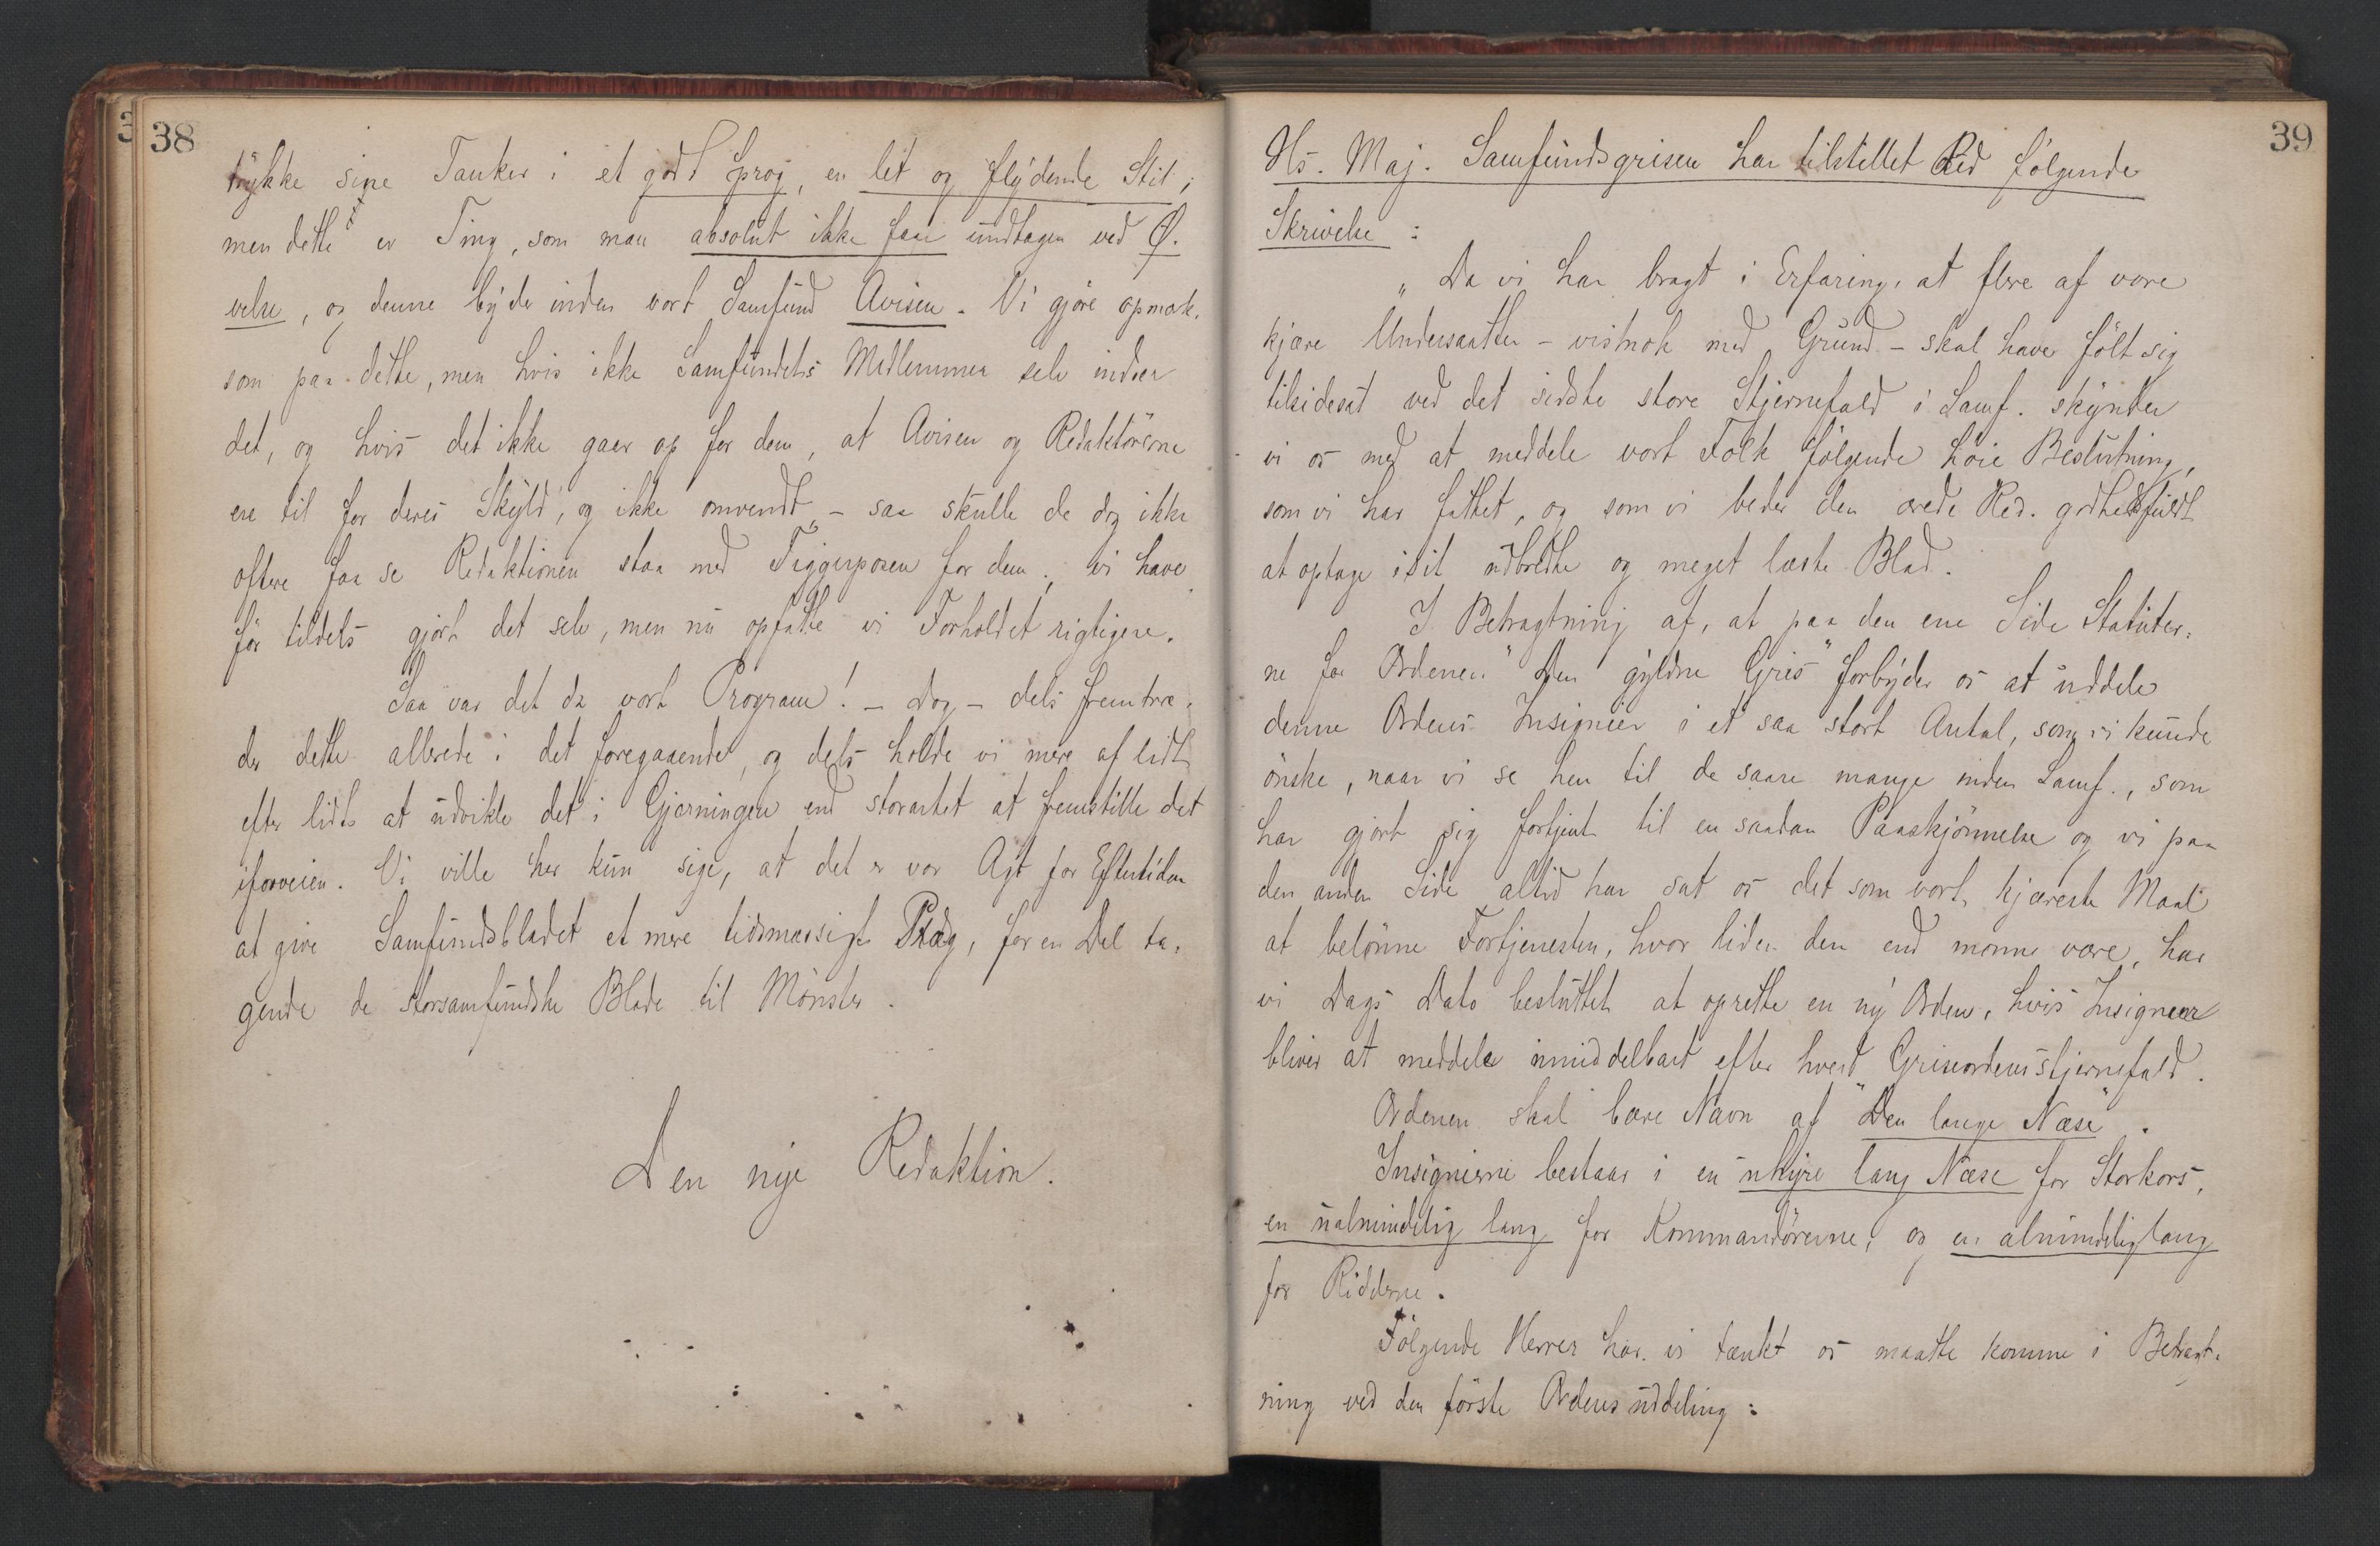 38
trykke sine Tanker i et godt Sprog, en let og flydende Stil;
men dette er Ting, som man absolut ikke faar undtagen ved Ø-
velse, og denne byder inden vort Samfund Avisen. Vi gjøre opmærk-
som paa dette, men hvis ikke Samfundets Medlemmer selv indser
det, og hvis det ikke gaar op for dem, at Avisen og Redaktörerne
ere til for deres Skyld, og ikke omvendt, – saa skulle de dog ikke
oftere faa se Redaktionen staa med Tiggerposen for dem; vi have
för tildels gjort det selv, men nu opfatte vi Forholdet rigtigere.
Saa var det da vort Program! – Dog – dels fremtræ-
der dette allerede i det foregaaende, og dels holde vi mere af lidt
efter lidt at udvikle det i Gjerningen end storartet at fremstille det
iforveien. Vi ville her kun sige, at det er vor Agt for Eftertiden
at give Samfundsbladet et mere tidsmæssigt Præg, for en Del ta-
gende de storsamfundske Blade til Mönster.
Den nye Redaktion.
39
Hs. Maj. Samfundsgrisen har tilstillet Red følgende
Skrivelse:
„Da vi har bragt i Erfaring, at flere af vore
kjære Undersaatter – vistnok med Grund – skal have fölt sig
tilsidesat ved det sidste store Stjernefald i Samf. skynder
vi os med at meddele vort Folk fölgende höie Beslutning,
som vi har fattet, og som vi beder den ærede Red. godhedsfuldt
at optage i sit udbredte og meget læste Blad.
I Betragtning af, at paa den ene Side Statuter-
ne for Ordenen "Den gyldne Gris" forbyder os at uddele
denne Ordens Insignier i et saa stort Antal, som vi kunde
önske, naar vi se hen til de saare mange inden Samf., som
har gjort sig fortjent til en saadan Paaskjönnelse og vi paa
den anden Side altid har sat os det som vort kjæreste Maal
at belönne Fortjenesten, hvor liden den end monne være, har
vi Dags Dato besluttet at oprette en ny Orden, hvis Insignier
bliver at meddele umiddelbart efter hvert Griseordensstjernefald.
Ordenen skal bære Navn af "Den lange Næse".
Insignierne bestaar i en uhyre lang Næse for Storkors,
en ualmindelig lang for Kommandörerne, og en almindelig lang
for Ridderne.
Fölgende Herrer har vi tænkt os maatte komme i Betragt-
ning ved den förste Ordensuddeling: